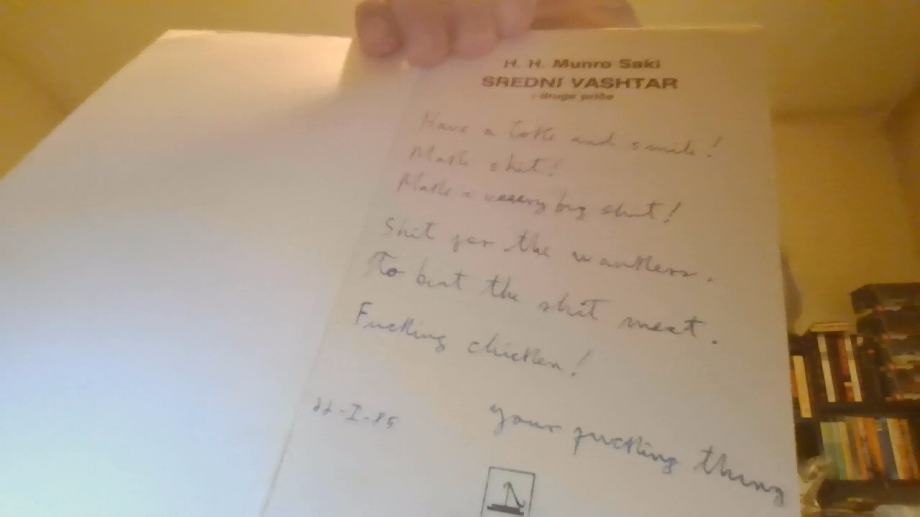 H. H. Munro Saki
SREDNI VASHTAR
i druge priče
Have a toke and smile!
Make shit!
Make a veeery big shit!
Shit for the wankers.
To beat the shit meat.
Fucking chicken!
22-I-85
your fucking thing